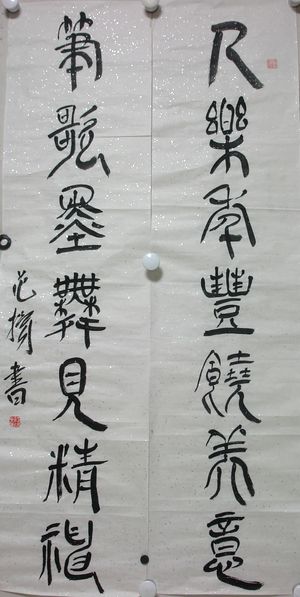 人樂年豐饒美意
筆歌墨舞見精神
書